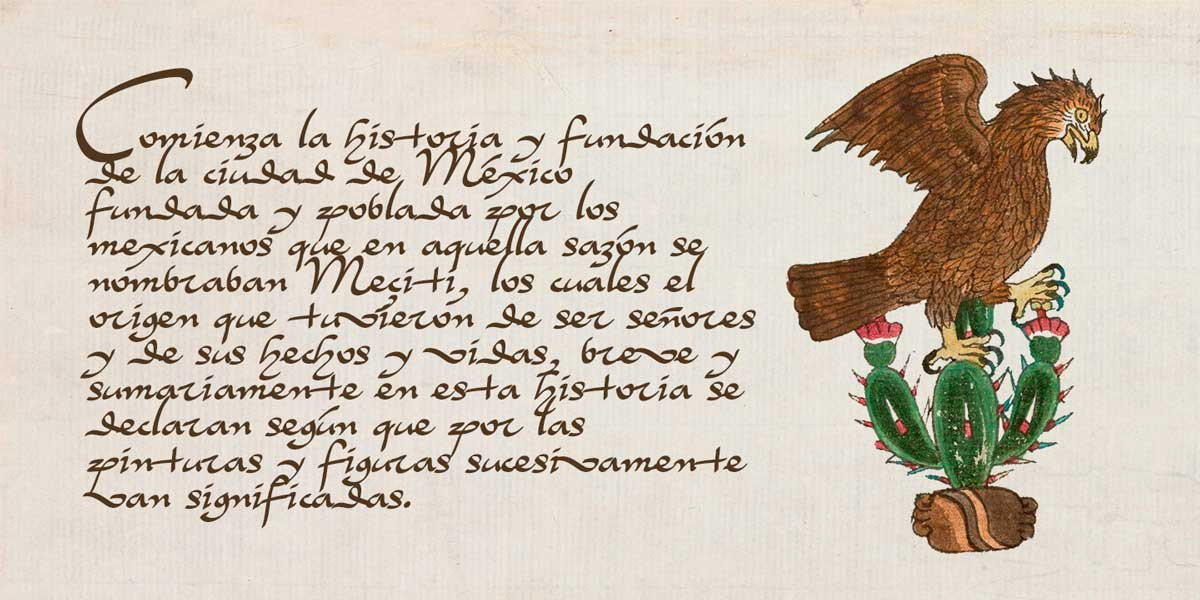 Comienza la historia y fundación
de la ciudad de México
fundada y poblada por los
mexicanos que en aquella sazón se
nombraban Meçiti, los cuales el
origen que tuvieron de ser señores
y de sus hechos y vidas, breve y
sumariamente en esta historia se
declaran según que por las
pinturas y figuras sucesivamente
van significadas.